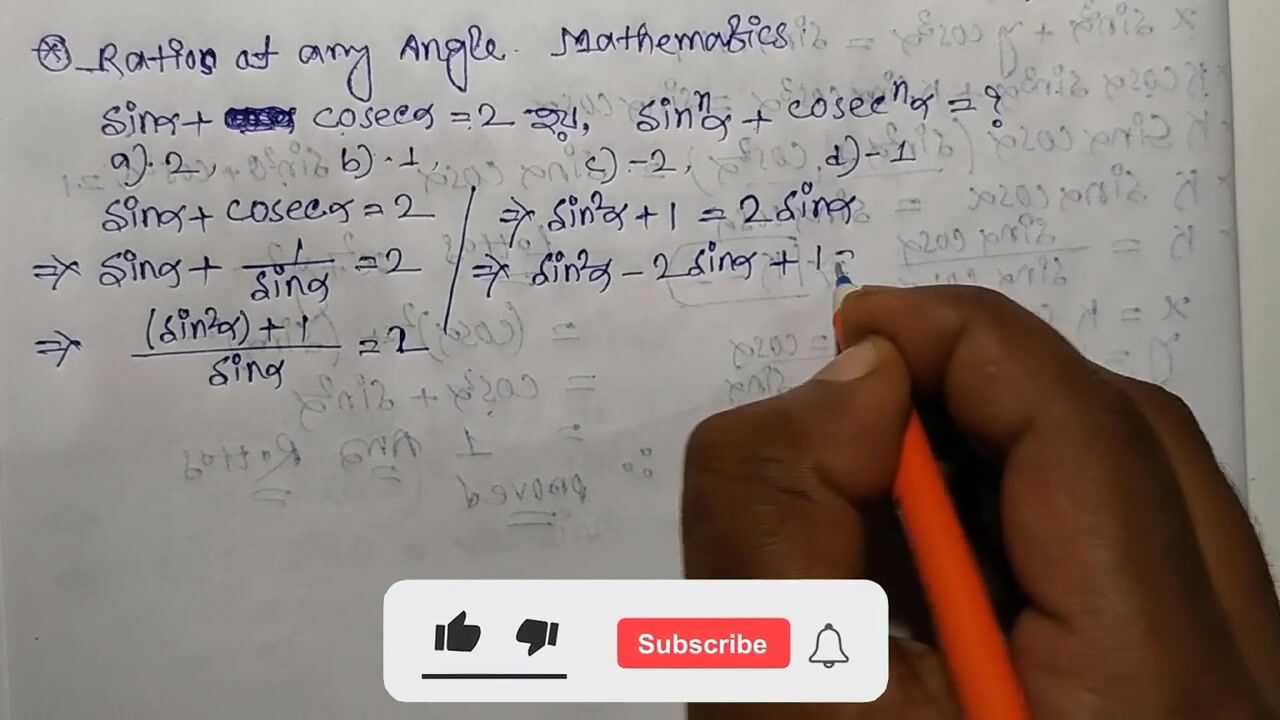 Ratios at any Angle. Mathematics
sinα + cosecα = 2 হয়, sinⁿα + cosecⁿα = ?
a) 2, b) 1, c) -2, d) -1
sinα + cosecα = 2
⇒ sinα + 1/sinα = 2
⇒ (sin²α) + 1/sinα = 2
⇒ sin²α + 1 = 2 sinα
⇒ sin²α - 2 sinα + 1 =
Subscribe